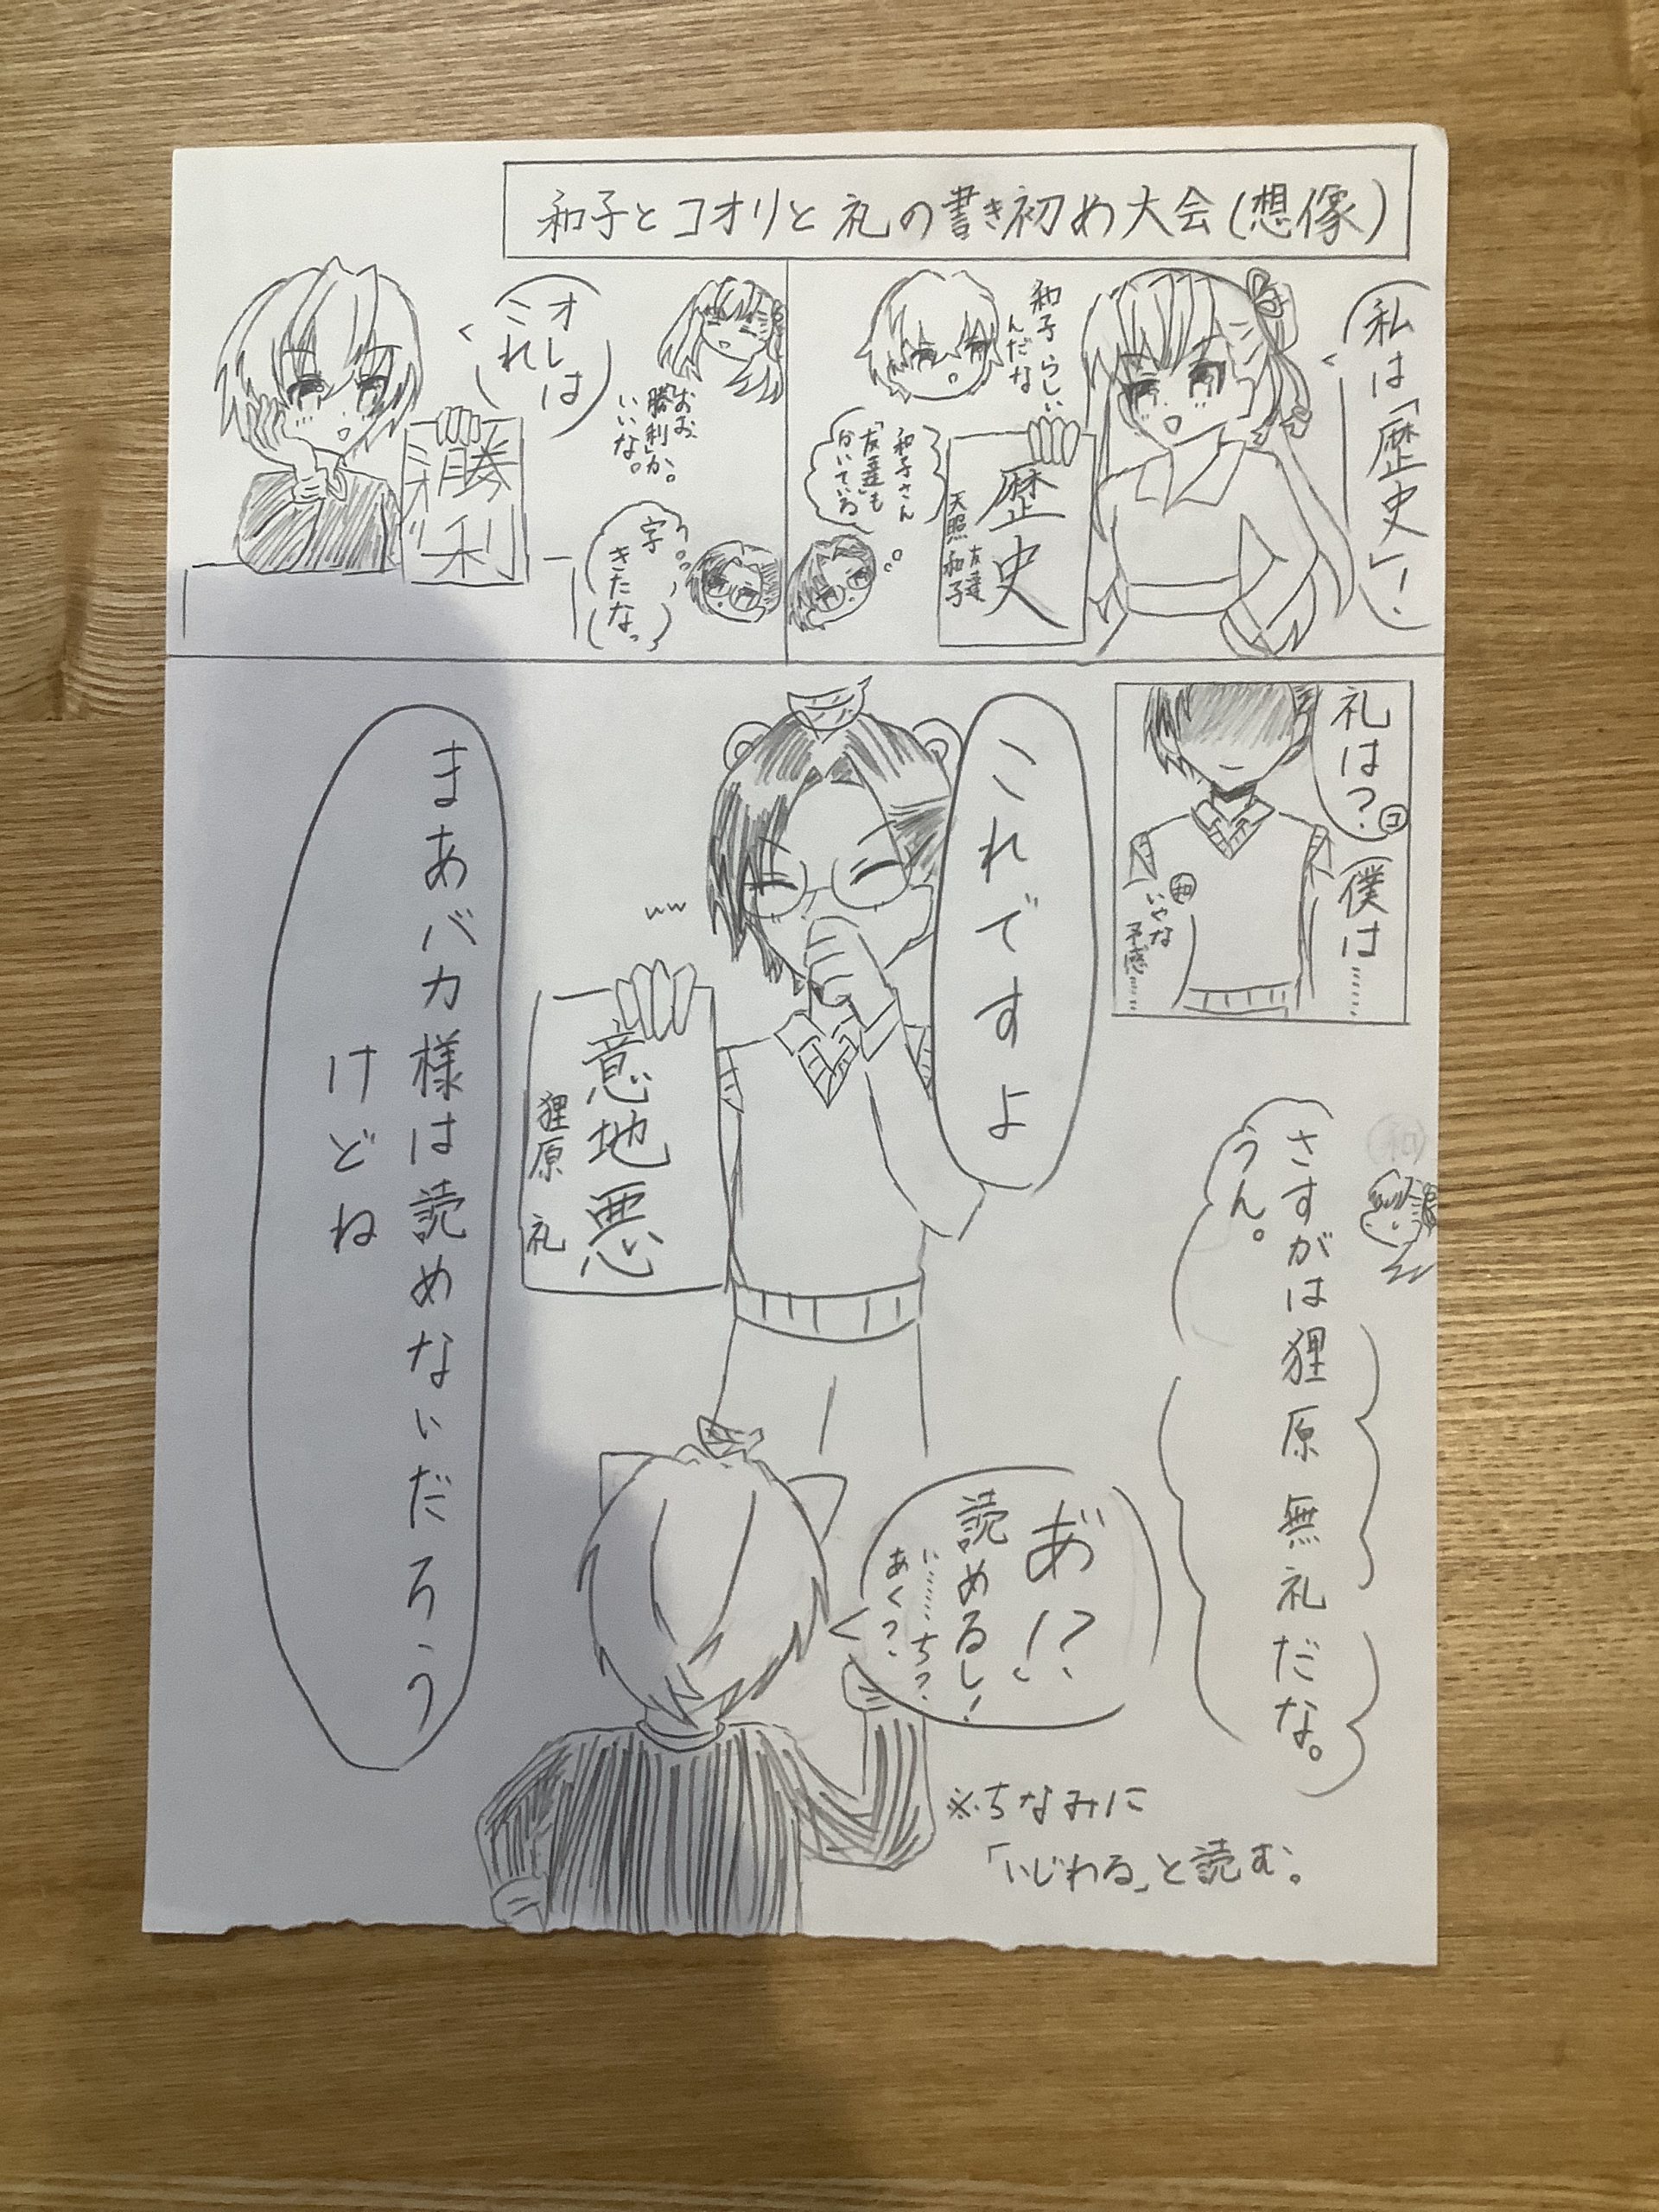 和子とコオリと礼の書き初め大会(想像)
私は「歴史」!
和子らしい
んだな
歴史
友達
天照 和子
和子さん
「友達」も
かいている
オレは
これ
勝利
おお、
勝利か。
いいな。
字
きたなっ
礼は?
コ
僕は……
和
いやな
予感……
これですよ
ww
意地悪
狸原 礼
まあバカ様は読めないだろう
けどね
和
さすがは狸原無礼だな。
うん。
あ゛!?
読めるし!
い……ち?
あく?
※ちなみに
「いじわる」と読む。